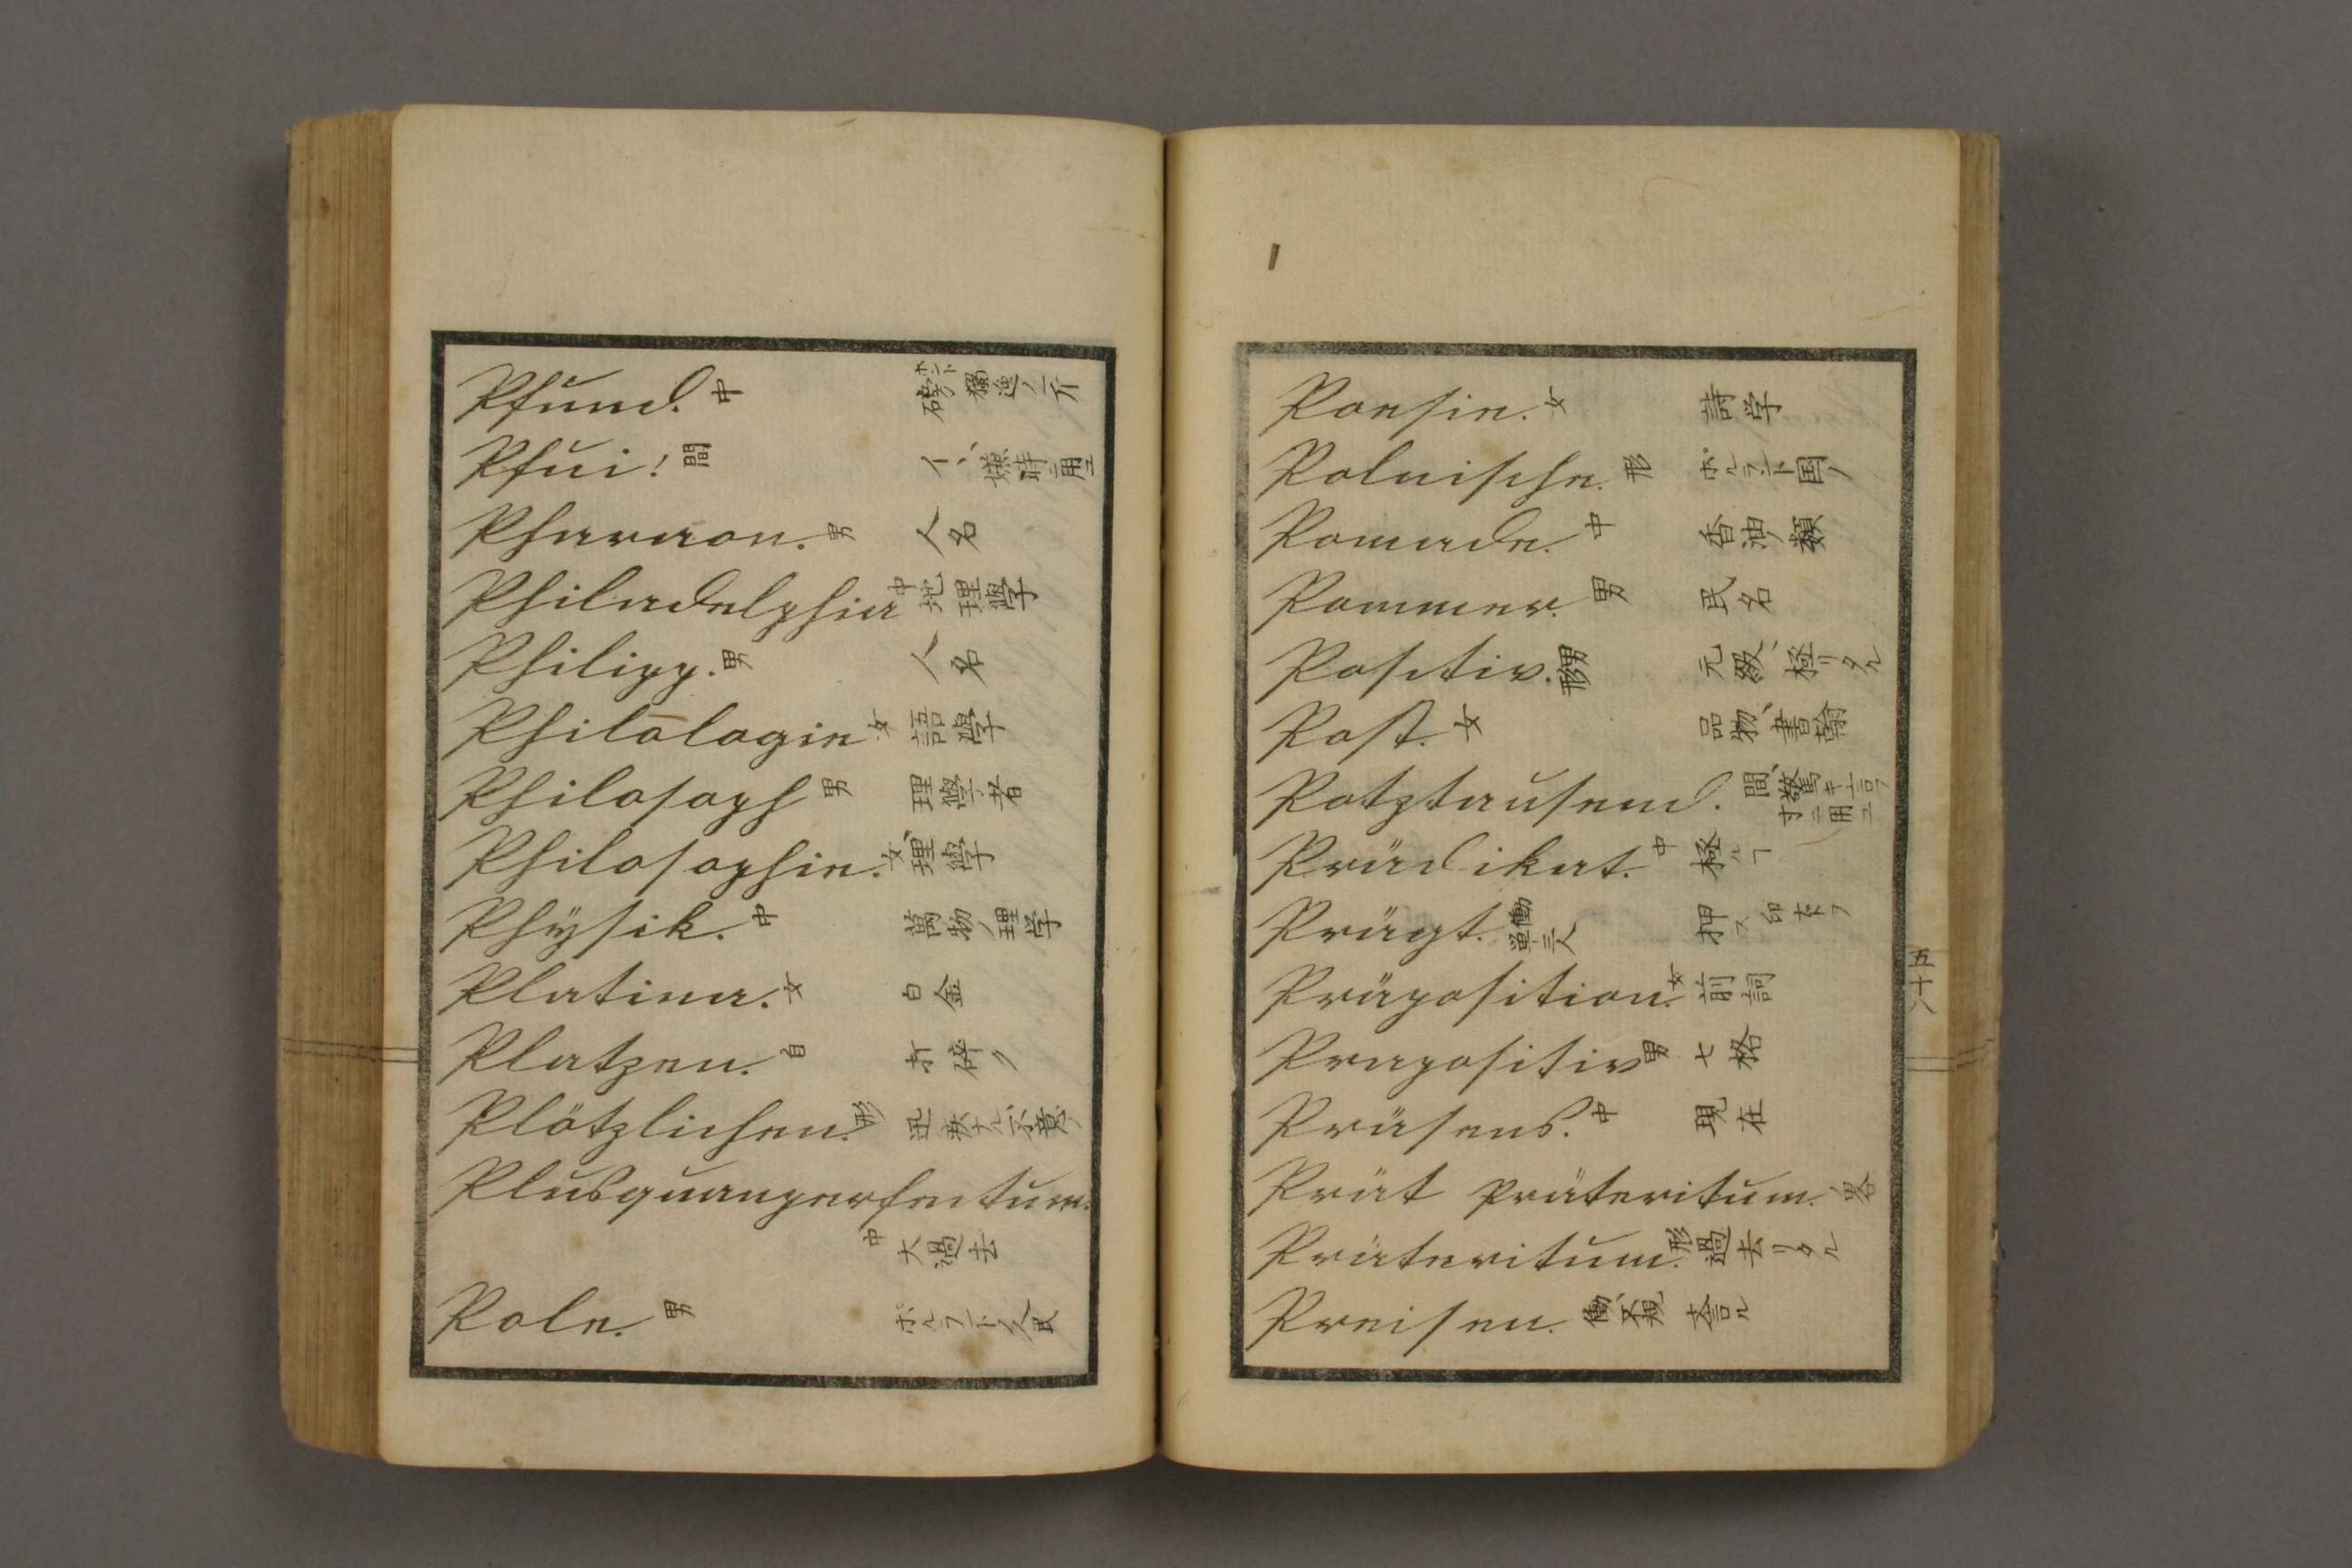 Pfund. 中
Pfui! 間
Pharaon. 男 人名
Philadelphia 中 地理學
Philipp. 男 人名
Philologie 女 語學
Philosoph 男 理學者
Philosophie. 女 理學
Physik. 中 萬物ノ理学
Platina. 女 白金
Platzen. 自 碎ク
Plötzlichen. 形
Plusquanperfectum.
中 大過去
Pole. 男 ポルランド人民
Poesie. 女 詩学
Polnische. 形 ポルランド国ノ
Pomade. 中 香油ノ類
Pommer. 男 民名
Positiv. 男 形 元級、極リタル
Post. 女 品物、書翰
Potztausend. 間、驚キ
Prädikat. 中 極ル
Prägt. 働 単三人 押ス
Präposition. 女 前詞
Prapositiv 男 七格
Präsens. 中 現在
Prät Präteritum. ノ畧
Präteritum. 形 過去リタル
Preisen. 働、不規
五十八